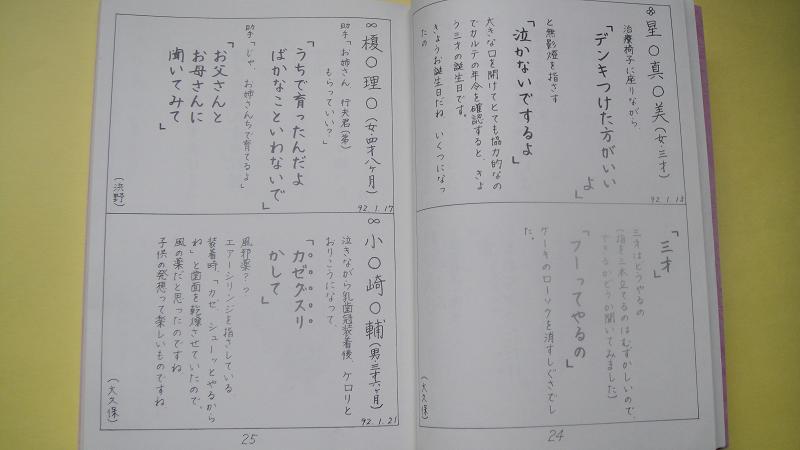 ※星〇真〇美(女・三才)
92.1.18
治療椅子に座りながら、
「デンキつけた方がいい
よ」
と無影燈を指さす
「泣かないでするよ」
大きな口を開けてとても協力的なの
でカルテの年令を確認すると、きょ
う三才の誕生日です。
きょうお誕生日だね いくつになっ
たの
「三才」
三才はどうやるの
(指を三本立てるのはむずかしいので、
できるかどうか聞いてみました)
「フーってやるの」
ケーキのローソクを消すしぐさでし
た。
(大久保)
24
∞榎〇理〇(女・四才八ヶ月)
92.1.17
助手「お姉さん 行夫君(弟)
もらっていい?」
「うちで育ったんだよ
ばかなこといわないで」
助手「じゃ、お姉さんちで育てるよ」
「お父さんと
お母さんに
聞いてみて」
(浜野)
∞小〇崎〇輔(男三才六ヶ月)
92.1.21
泣きながら乳歯冠装着後、ケロリと
おりこうになって
「カゼグスリ
かして」
風邪薬?っ
エアーシリンジを指さしている
装着時、「カゼ シューッとやるから
ね」と歯面を乾燥させていたので、
風の薬だと思ったのですね
子供の発想って楽しいものですね
(大久保)
25